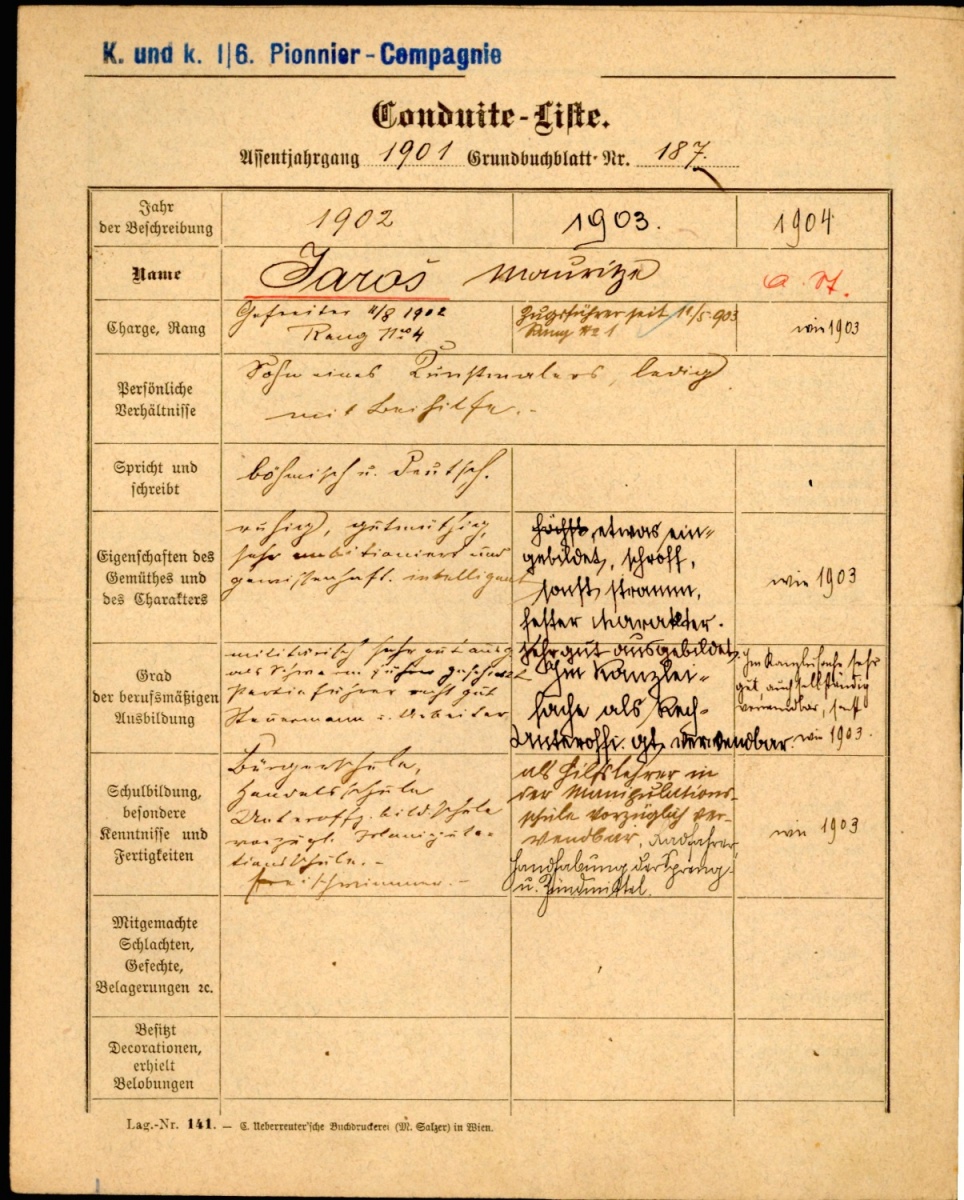 K. und k. 1/6. Pionnier-Compagnie
Conduite-Liste.
Assentjahrgang 1901 Grundbuchblatt-Nr. 187.
Jahr
der Beschreibung
1902
1903.
1904
Name
Jaroš Mauritze
Charge, Rang
Gefreiter 11/8 1902
Rang No 4
Zugsführer seit 11/5 903
Rang No 1
wie 1903
Persönliche
Verhältnisse
Sohn eines Kunstmalers, ledig
mit Beihilfe.-
Spricht und
schreibt
böhmisch u. Deutsch.
Eigenschaften des
Gemüthes und
des Charakters
ruhig, gutmüthig,
sehr ambitioniert und
gewissenhaft. intelligent
höchst etwas ein-
gebildet, schroff,
sonst stramm,
fester Charakter.
wie 1903
Grad
der berufsmäßigen
Ausbildung
militärisch sehr gut ausg.
als
Partieführer recht gut
Steuermann u. Arbeiter
Sehr gut ausgebildet.
Im Kanzlei-
fache als Rech-
Unteroffi. gt. verwendbar.
Im Kanzleifache sehr
gut, auch selbständig
verwendbar,
wie 1903.
Schulbildung,
besondere
Kenntnisse und
Fertigkeiten
Bürgerschule,
Handelsschule
Unteroffz. bild. schule
vorzügl. Manipula-
tionsschule.-
Freischwimmer.-
als Hilfslehrer in
der Manipulations-
schule vorzüglich ver-
wendbar, Radfahrer
Handhabung der Spreng-
u. Zündmittel.
wie 1903
Mitgemachte
Schlachten,
Gefechte,
Belagerungen ꝛc.
Besitzt
Decorationen,
erhielt
Belobungen
Lag.-Nr. 141. — C. Ueberreuter'sche Buchdruckerei (M. Salzer) in Wien.